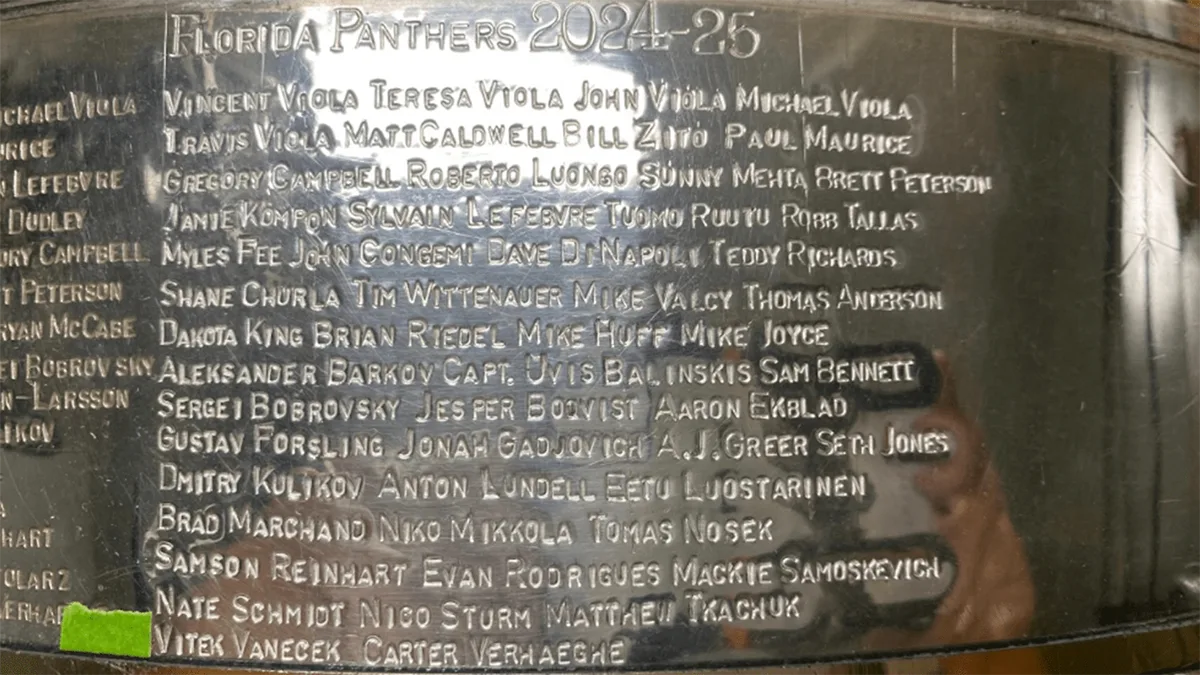 FLORIDA PANTHERS 2024-25
VINCENT VIOLA TERESA VIOLA JOHN VIOLA MICHAEL VIOLA
TRAVIS VIOLA MATT CALDWELL BILL ZITO PAUL MAURICE
GREGORY CAMPBELL ROBERTO LUONGO SUNNY MEHTA BRETT PETERSON
JAMIE KOMPON SYLVAIN LEFEBVRE TUOMO RUUTU ROBB TALLAS
MYLES FEE JOHN CONGEMI DAVE DINAPOLI TEDDY RICHARDS
SHANE CHURLA TIM WITTENAUER MIKE VALCY THOMAS ANDERSON
DAKOTA KING BRIAN RIEDEL MIKE HUFF MIKE JOYCE
ALEKSANDER BARKOV CAPT. UVIS BALINSKIS SAM BENNETT
SERGEI BOBROVSKY JESPER BOQVIST AARON EKBLAD
GUSTAV FORSLING JONAH GADJOVICH A.J. GREER SETH JONES
DMITRY KULIKOV ANTON LUNDELL EETU LUOSTARINEN
BRAD MARCHAND NIKO MIKKOLA TOMAS NOSEK
SAMSON REINHART EVAN RODRIGUES MACKIE SAMOSKEVICH
NATE SCHMIDT NICO STURM MATTHEW TKACHUK
VITEK VANECEK CARTER VERHAEGHE
VIOLA
LEFEBVRE
DUDLEY
CAMPBELL
PETERSON
MCCABE
BOBROVSKY